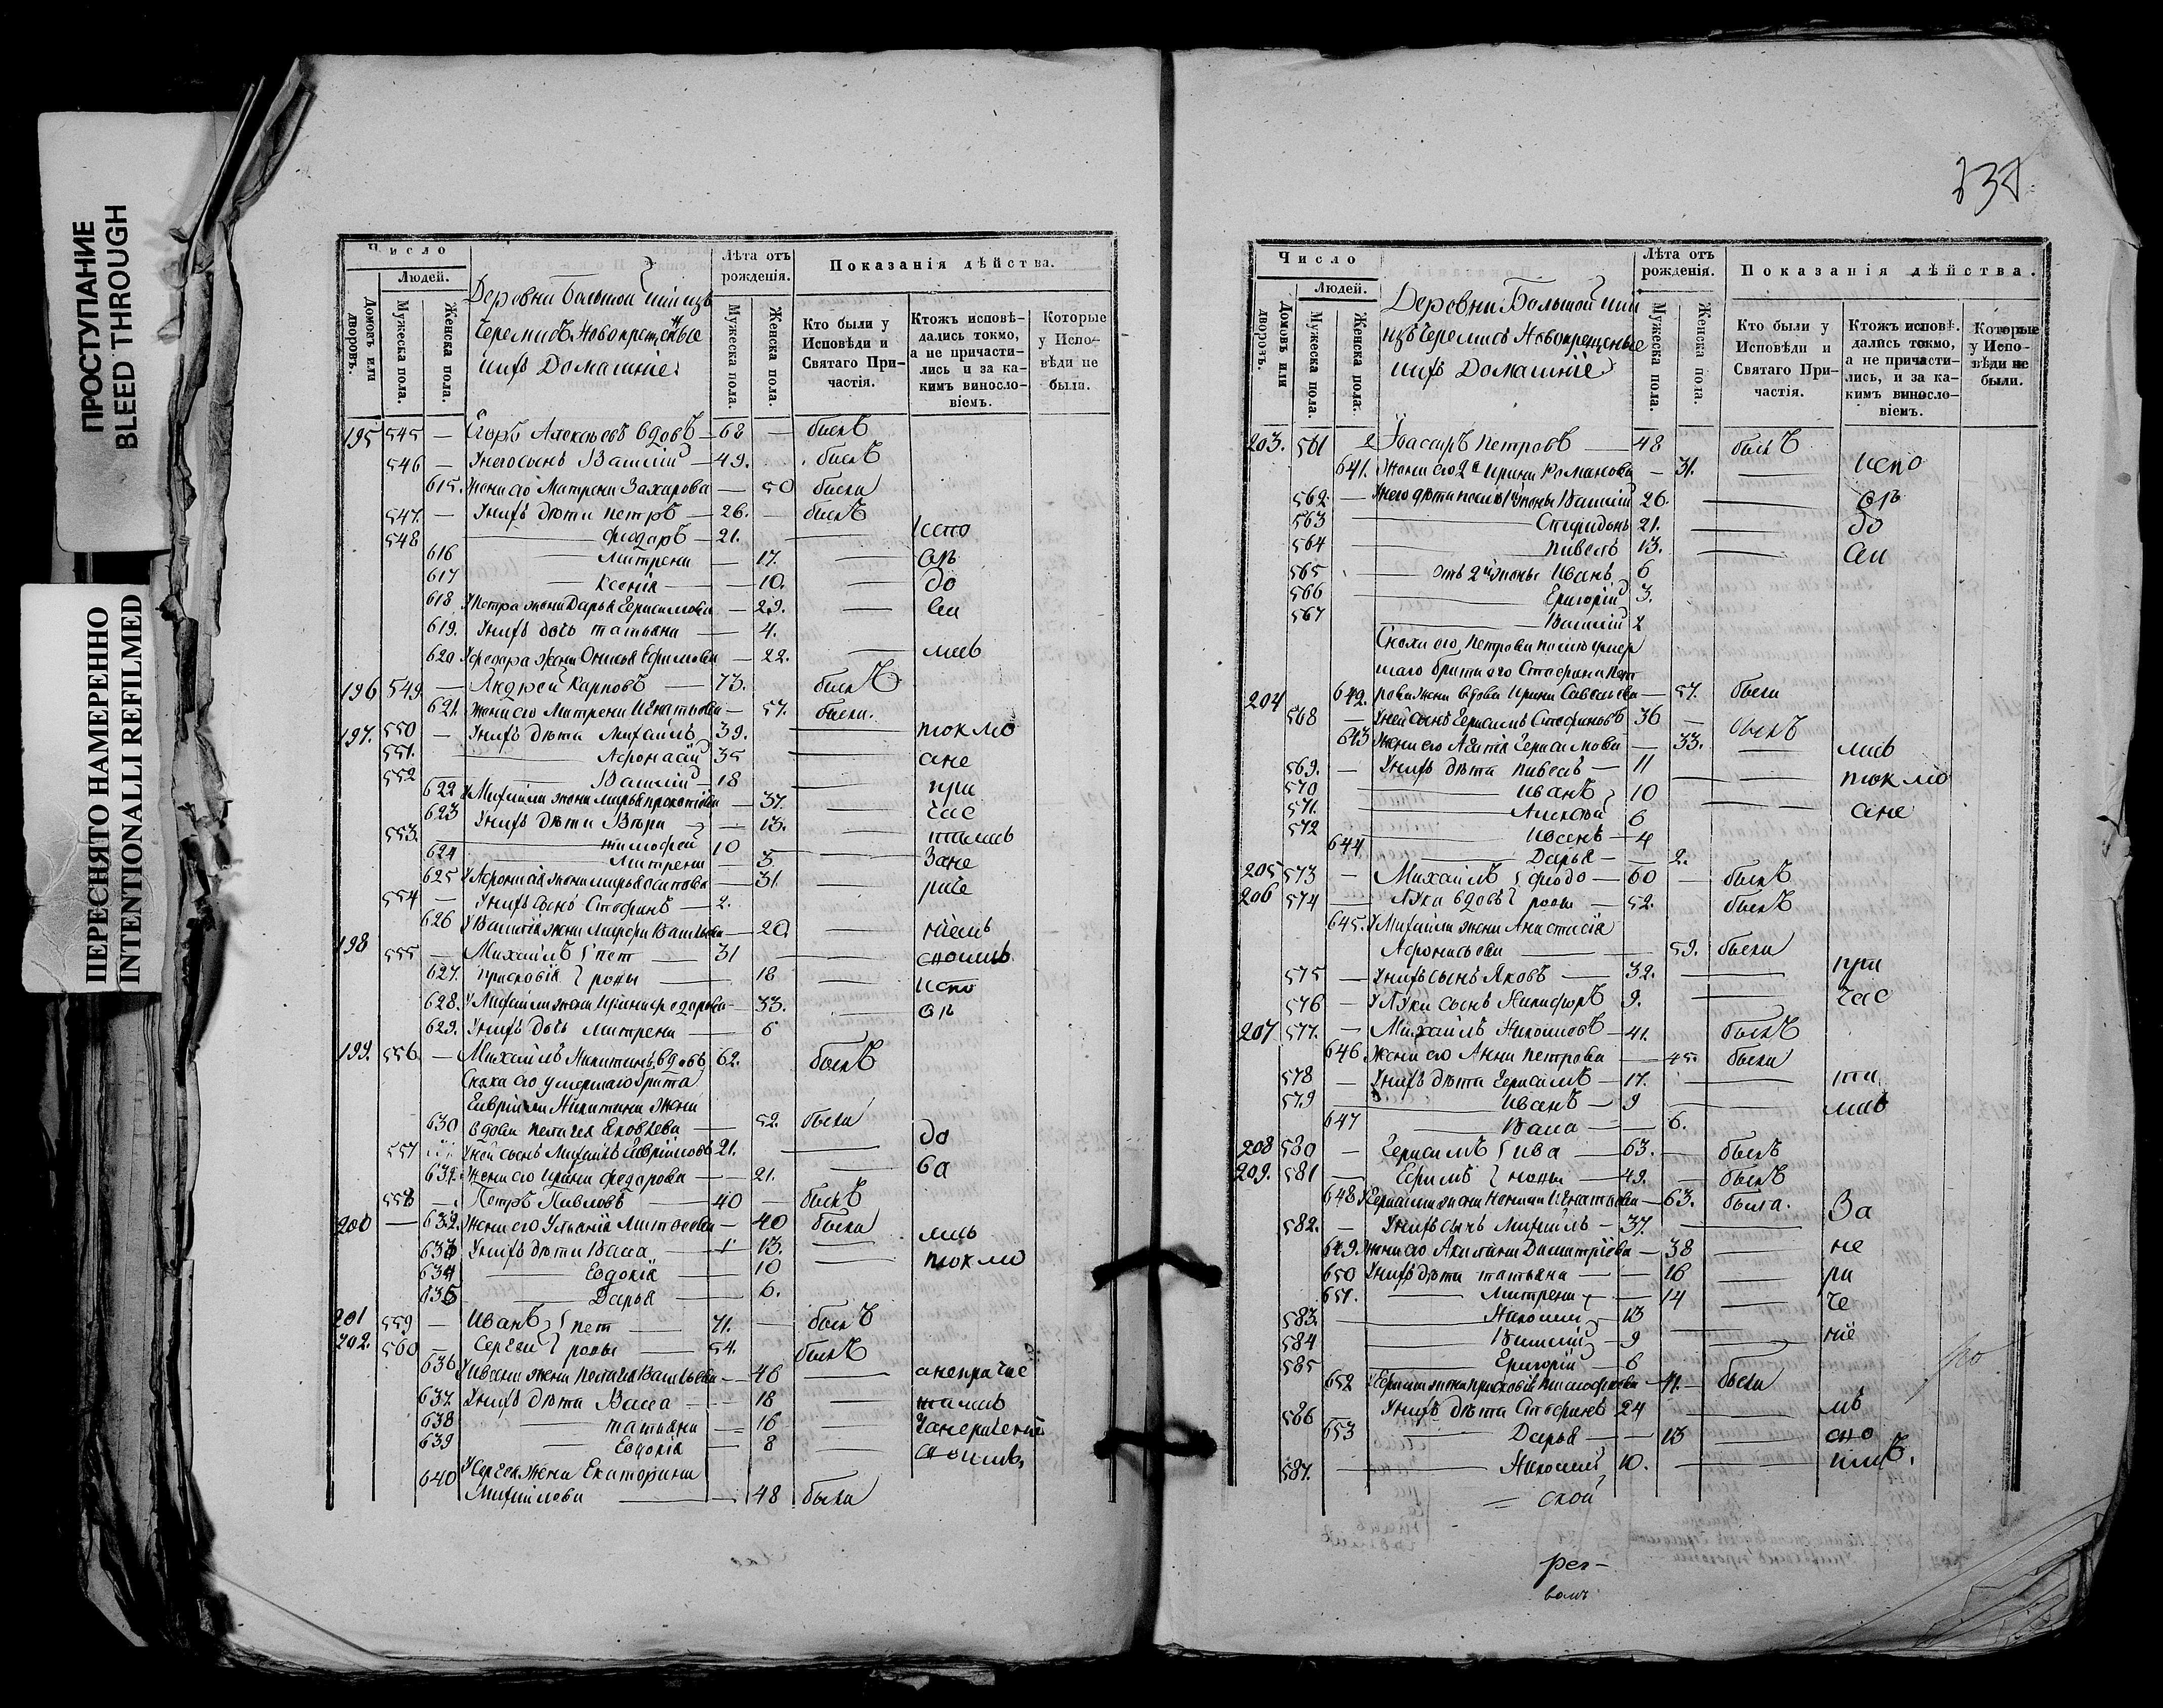 ПРОСТУПАНИЕ
BLEED THROUGH
ПЕРЕСНЯТО НАМЕРЕННО
INTENTIONALLI REFILMED
Число
Людей.
Домовъ или дворовъ.
Мужеска пола.
Женска пола.
Деревни Большой
Черемисъ Новокрещеные
нихъ Домашніе
Лѣта отъ рожденія.
Мужеска пола.
Женска пола.
Показанія дѣйства.
Кто были у Исповѣди и Святаго Причастія.
Ктожъ исповѣдались токмо, а не причастились и за какимъ винословіемъ.
Которые у Исповѣди не были.
195 545 — Егоръ Алексѣевъ вдовъ — 68 — былъ
546 — У него сынъ Василій — 49. былъ
615. Жена его Матрена Захарова — 50 была
547. — У нихъ дѣти Петръ — 26. — былъ
548 — Федоръ — 21. — испо
616 — Матрена — 17. — вѣ
617 — Ксенія — 10. — до
618 У Петра жена Дарья Герасимова — 29. — ва
619. У нихъ дочь Татьяна — 4.
620 У Федора жена Онисья Ефимова — 22. — лись
196 549. — Андрей Карповъ — 73. былъ
621. Жена его Матрена Игнатьева — 57. была.
197. 550 — У нихъ дѣти Михайлъ 39. — токмо
551. — Афонасій 35 — ане
552 — Василій — 18 — при
622 У Михайлы жена Марья Прокопіева — 37. — час
623 У нихъ дѣти Вѣра — 13. — тились
553. — Тимофей 10
624 — Матрена — 5 — Зане
625 У Афонасія жена Марья Осипова — 31 — раче
554 — У нихъ сынъ Стефанъ — 2.
626 У Василія жена Васильева — 20. — ніемъ
198 555 — Михайлъ } Пет — 31 — сноимъ
627. Прасковія } ровы — 18 — испо
628. У Михайлы жена Ирина Федорова — 33. — вѣ
629. У нихъ дочь Матрена — 6
199. 556. — Михайлъ Никитинъ вдовъ 62. былъ
Сноха его умершаго брата
Гаврилы Никитина жена
630 вдова Пелагея Яковлева — 52. была
557 У ней сынъ Михайлъ Гавриловъ 21. — до
631. Жена его Ирина Федорова — 21. — ва
558 — Петръ Павловъ — 40 — былъ
200 — 632. Жена его Ульянія — 40 была
633 У нихъ дѣти Васа — 13. — лись
634 — Евдокія — 10 — токмо
635 — Дарья — 6.
201 559 — Иванъ } Пет — 71. — былъ
202. 560 — Сергей } ровы — 54. былъ
636 У Ивана жена Пелагея Васильева — 46 — анепричас
637. У нихъ дѣти Васса — 18 — тились
638 — Татьяна — 16 —
639 — Евдокія — 8 — сноимъ.
640 У Сергея жена Екатерина
Михайлова — 48 была
Число
Людей.
Домовъ или дворовъ.
Мужеска пола.
Женска пола.
Деревни Большой
изъ Черемисъ Новокрещеные
нихъ Домашніе
Лѣта отъ рожденія.
Мужеска пола.
Женска пола.
Показанія дѣйства.
Кто были у Исповѣди и Святаго Причастія.
Ктожъ исповѣ. дались токмо, а не причастились, и за какимъ винословіемъ.
Которые у Исповѣди не были.
203. 561 Петровъ — 48 былъ
641. Жена его 2я Ирина Романова — 31. — испо
562 — У него дѣти Василій 26. — вѣ
563 — Спиридонъ 21. — до
564 — Павелъ 13. — ва
565 — отъ 2й жены Иванъ 6
566 — Григорій 3.
567 — Василій 2
Сноха его Петрова умер
шаго брата его Стефана Пет
204 642. рова жена вдова Ирина Савельева — 57. была
568 — У ней сынъ Герасимъ Стефановъ 36 — былъ
643 Жена его Агафія Герасимова — 33. — лись
569. — У нихъ дѣти Павелъ — 11 — токмо
570 — Иванъ 10
571. — Алексѣй 6 — ане
572 — Иванъ — 4
644 — Дарья — 2.
205 573 — Михайлъ } Федо — 60 — былъ
206 574 — Лука вдовъ } ровы — 52. былъ
645. У Михайлы жена Анастасія
Афонасьева — 59. была
575 — У нихъ сынъ Яковъ — 32. — при
576 — У Луки сынъ Никифоръ 9. — час
207 577. — Михайлъ Николаевъ — 41. былъ
646 Жена его Анна Петрова — 45. была
578 — У нихъ дѣти Герасимъ — 17. — ти
579 — Иванъ — 9 — лись
647 — Васа — 6.
208 580 — Герасимъ } Ива — 63. — былъ
209. 581 — Ефимъ } новы — 49. — былъ
648 У Герасима жена Игнатьева — 63. была. За
582. — У нихъ сынъ Михайлъ — 37. —
649. Жена его Акилина Димитріева — 38 — не
650 У нихъ дѣти Татьяна — 16 — ра
651. — Матрена — 14 — че
583. — Николай 13
584 — Василій — 9 — ніе
585 — Григорій — 6
652 У Ефима жена Прасковія Тимофеева — 41. — была
586 У нихъ дѣти Стефанъ 24 — мъ
653 — Дарья — 13 — сно
587. — Николай 10. — имъ.
— ской